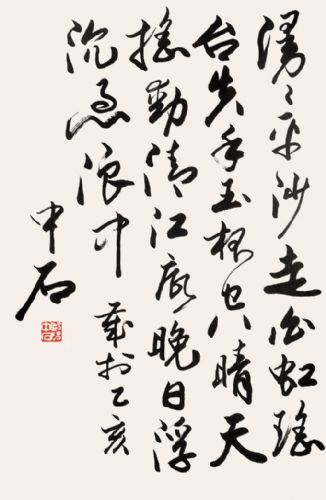 漫〻平沙走白虹瑤
台失手玉杯空晴天
搖動清江底晚日浮
沉急浪中
於乙亥
中石